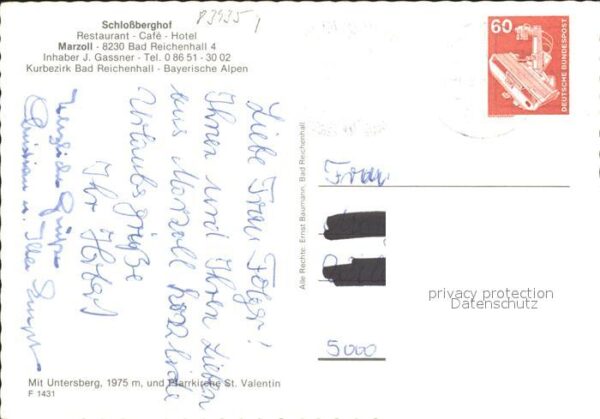 P3935
Schloßberghof
Restaurant - Café - Hotel
Marzoll - 8230 Bad Reichenhall 4
Inhaber J. Gassner - Tel. 0 86 51 - 30 02
Kurbezirk Bad Reichenhall - Bayerische Alpen
Liebe Frau Folger!
Ihnen und Ihren Lieben
aus Marzoll herzliche
Urlaubsgrüße
Ihr Herbert
Herzliche Grüße
Christian u. Ilse
Mit Untersberg, 1975 m, und Pfarrkirche St. Valentin
F 1431
Alle Rechte: Ernst Baumann, Bad Reichenhall
60
DEUTSCHE BUNDESPOST
Frau
privacy protection
Datenschutz
5000